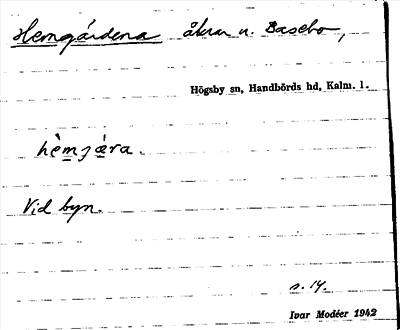 Hemgårdena åkrar n. Basebo,
Högsby sn, Handbörds hd, Kalm. l.
hèmgǻra.
Vid byn.
s. 14.
Ivar Modéer 1942